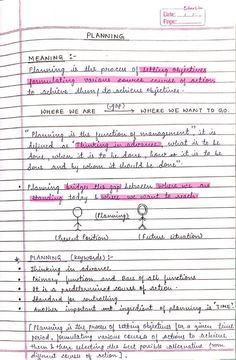 Date: / /
Page:
PLANNING
MEANING :-
Planning is the process of setting objectives
formulating various course of action
to achieve them/do achieve objectives.
(gap)
WHERE WE ARE → WHERE WE WANT TO GO.
"Planning is the function of management", it is
defined as "Thinking in advance, what is to be
done, when it is to be done, how it is to be
done and by whom it should be done"
• Planning bridges the gap between where we are
standing today & where we want to reach.
(Planning)
(Present Position) (Future situation)
* PLANNING (keywords) :-
• Thinking in advance
• Primary function and Base of all functions
• It is a predetermined course of action.
• Standard for controlling
• Another important ingredient of planning is "TIME"
[Planning is the process of setting objectives for a given time
period, formulating various courses of actions to achieve
them & then selecting the best possible alternative (from
different course of action].